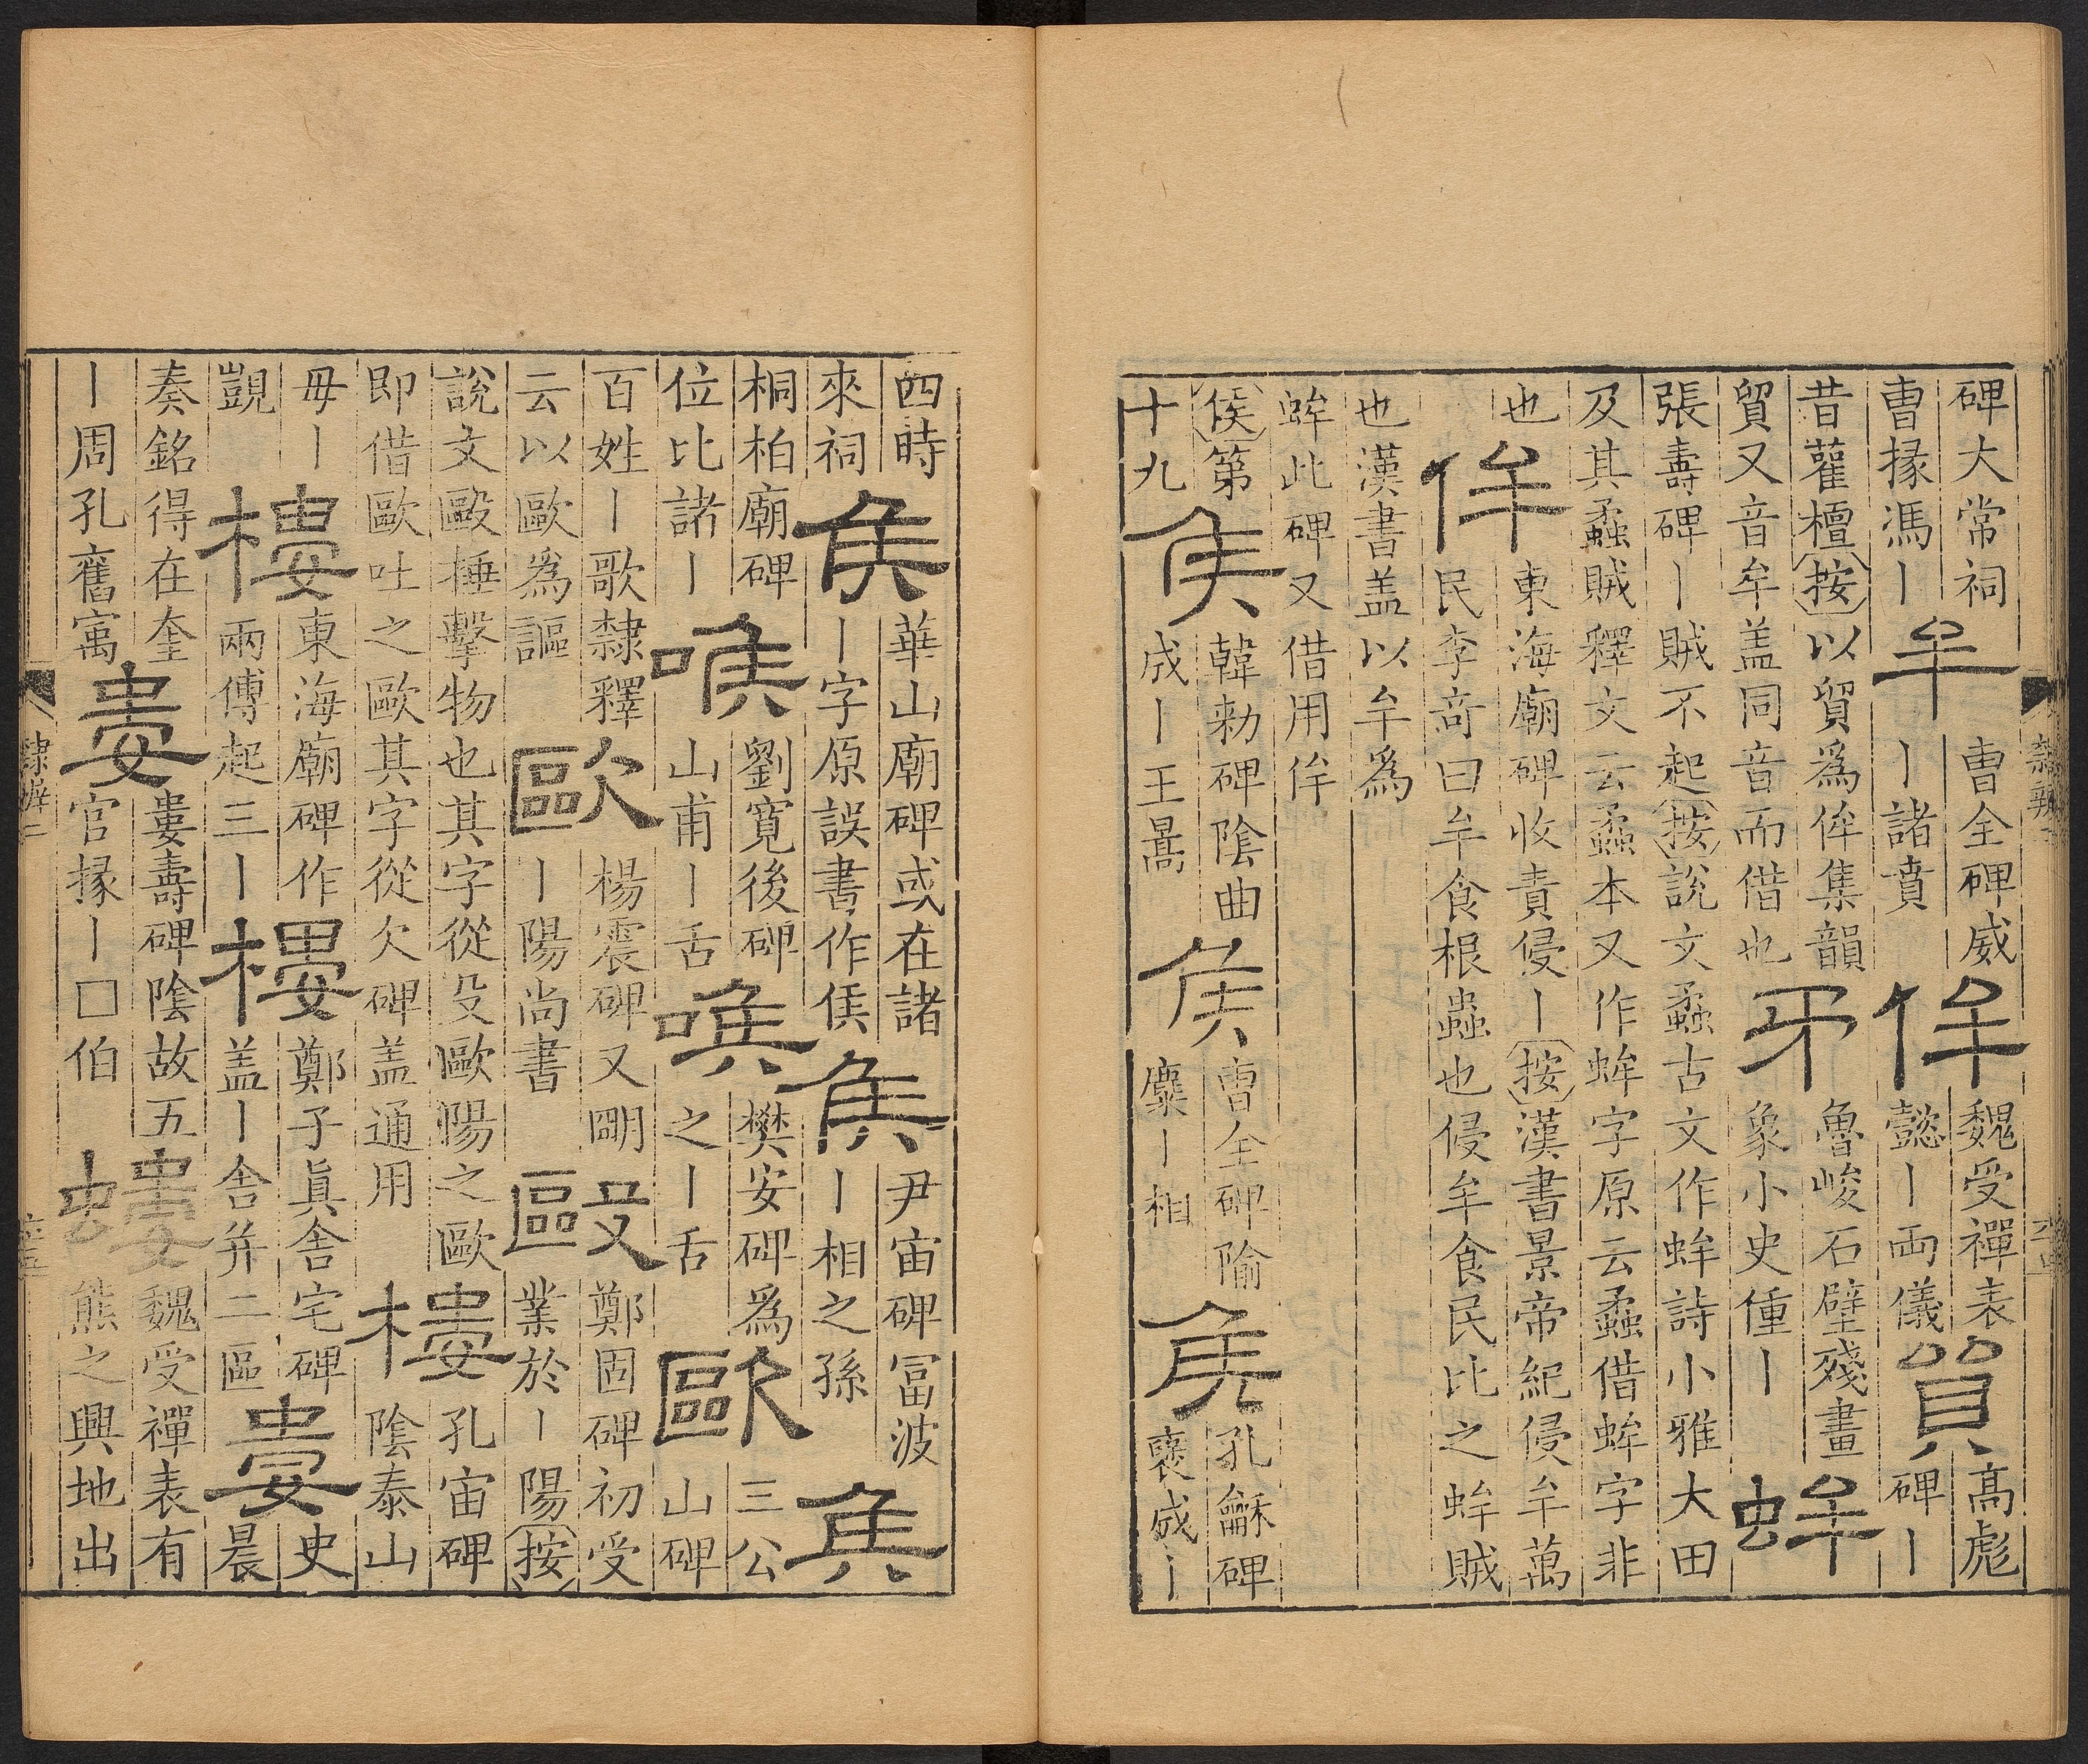 碑大常祠曹掾馮丨牟曹全碑威丨諸賁侔魏受禪表懿丨両儀貿高彪碑丨
昔雚檀按以貿爲侔集韻貿又音牟盖同音而借也矛魯峻石壁殘畫象小史偅丨蛑
張壽碑丨賊不起按說文蟊古文作蛑詩小雅大田及其蟊賊釋文云蟊本又作蛑字原云蟊借蛑字非
也侔東海廟碑收責侵丨按漢書景帝紀侵牟萬民李奇曰牟食根蟲也侵牟食民比之蛑賊
也漢書盖以牟爲蛑此碑又借用侔
侯第十九侯韓勑碑陰曲成丨王暠侯曹全碑陰麋丨相侯孔龢碑褒成丨
四時來祠侯華山廟碑或在諸丨字原誤書作侯侯尹宙碑冨波丨相之孫侯
桐柏廟碑位比諸丨喉劉寬後碑山甫丨舌喉樊安碑爲之丨舌歐三公山碑
百姓丨歌隸釋云以歐爲謳歐楊震碑又朙丨陽尚書毆鄭固碑初受業於丨陽按
說文毆捶擊物也其字從殳歐陽之歐即借歐吐之歐其字從欠碑盖通用樓孔宙碑陰泰山
毋丨覬樓東海廟碑作兩傅起三丨樓鄭子眞舍宅碑盖丨舍并二區婁史晨
奏銘得在奎丨周孔舊㝢婁婁壽碑陰故五官掾丨囗伯螻魏受禪表有熊之興地出
隸辨二